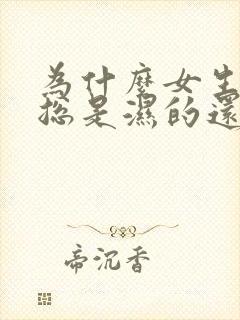 為什麼女生
總是濕的還
帝沉香